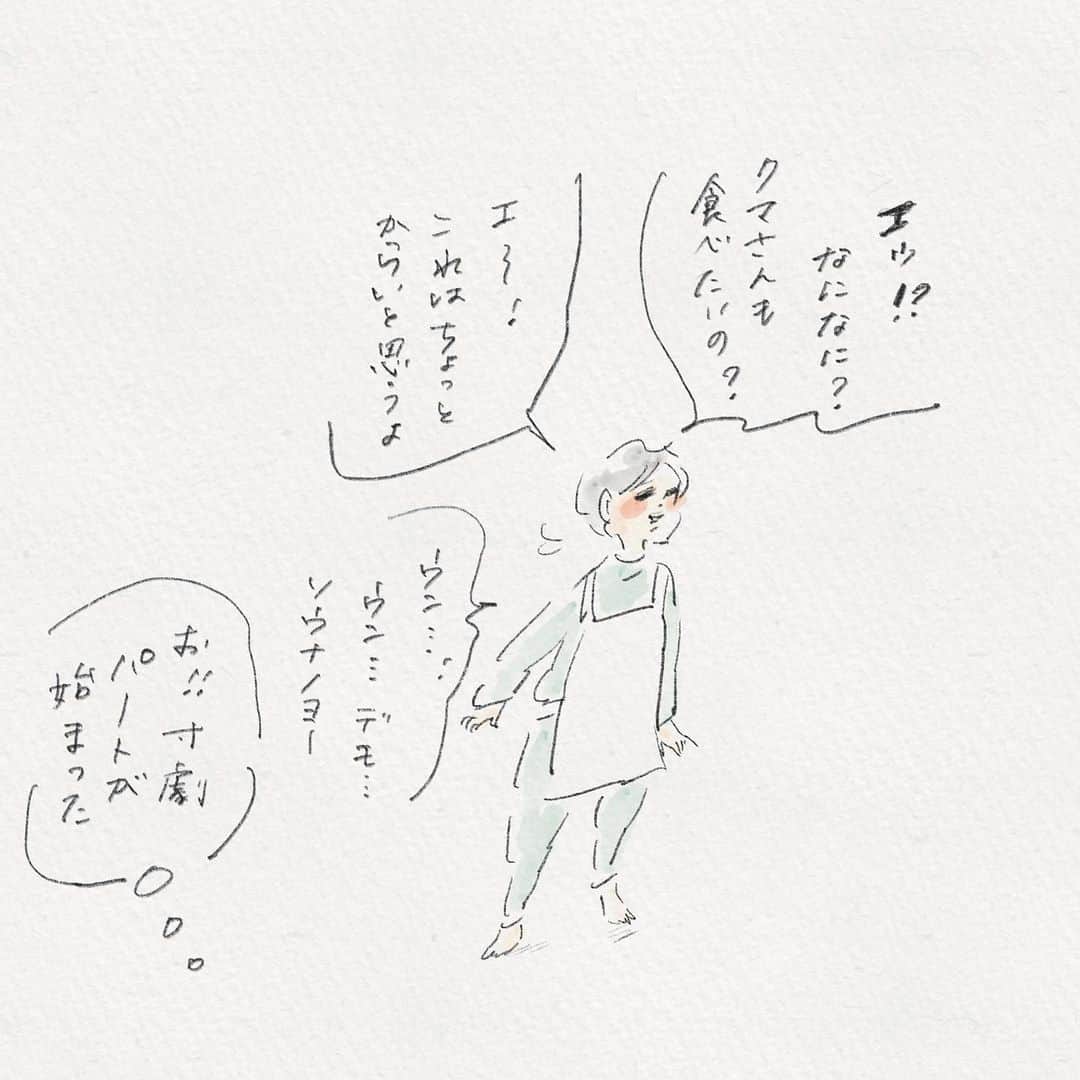 エッ!?
なになに?
クマさんも
食べたいの?
エ〜!
これはちょっと
からいと思うよ
ウン…
ウン…デモ…
ソウナノヨー
お!!寸劇
パートが
始まった